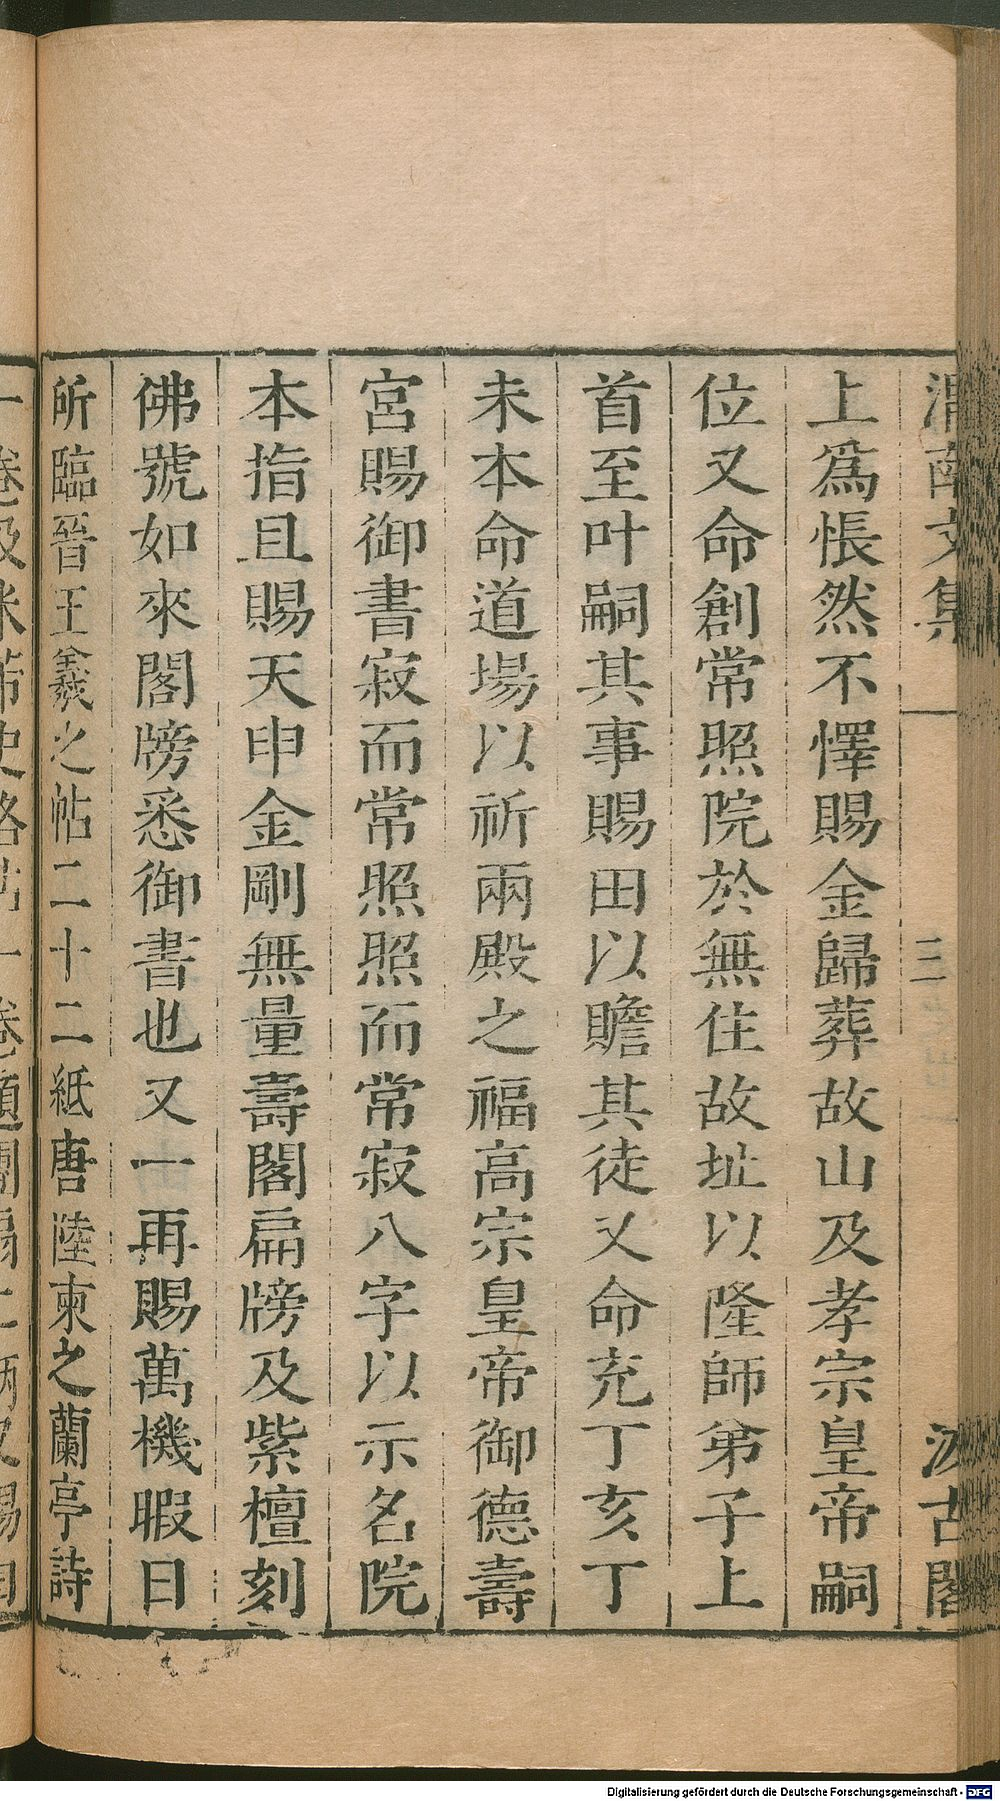 渭南文集 三 汲古閣
上爲悵然不懌賜金歸葬故山及孝宗皇帝嗣
位又命創常照院於無住故址以隆師弟子上
首至叶嗣其事賜田以贍其徒又命充丁亥丁
未本命道場以祈兩殿之福高宗皇帝御德壽
宮賜御書寂而常照照而常寂八字以示名院
本指且賜天申金剛無量壽閣扁牓及紫檀刻
佛號如來閣牓悉御書也又一再賜萬機暇日
所臨晉王羲之帖二十二紙唐陸柬之蘭亭詩
Digitalisierung gefördert durch die Deutsche Forschungsgemeinschaft - DFG